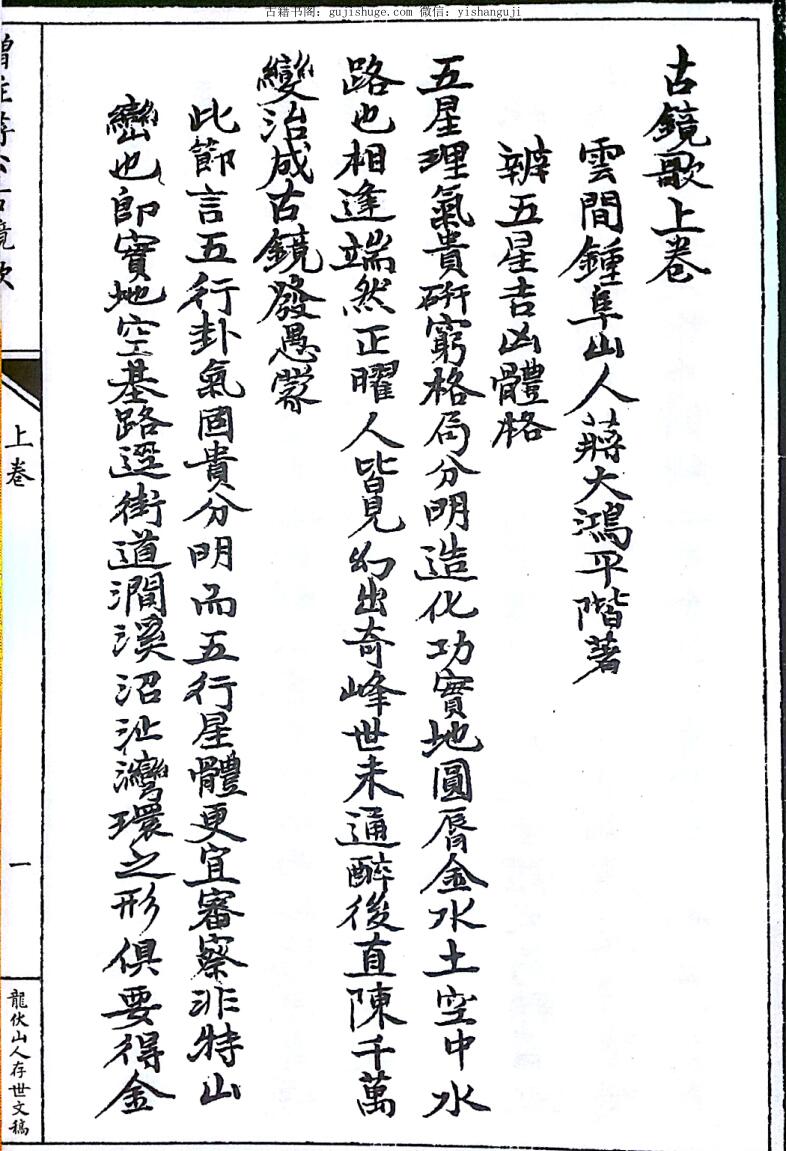 古籍书阁：gujishuge.com 微信：yishanguji
古鏡歌上卷
雲間鍾阜山人蔣大鴻平階著
辨五星吉凶體格
五星理氣貴硏窮格局分明造化功實地圓唇金水土空中水
路也相逢端然正曜人皆見幻出奇峰世未通醉後直陳千萬
變治成古鏡發愚蒙
此節言五行卦氣固貴分明而五行星體更宜審察非特山
巒也卽實地空基路逕街道澗溪沼沚灣環之形俱要得金
上卷
一
龍伏山人存世文稿